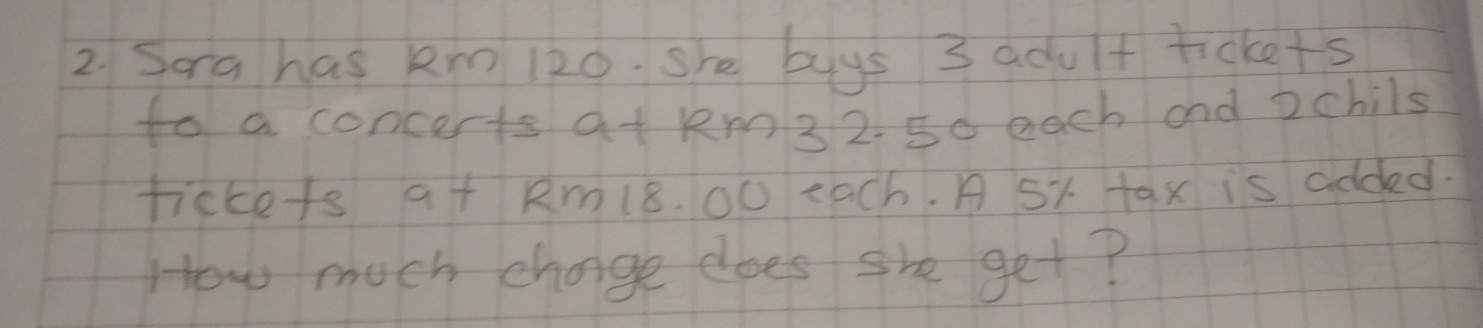 2. Sara has Rm 120. She buys 3 adult tickets
to a concerts at Rm 32.50 each and 2 chils
tickets at Rm 18.00 each. A 5% tax is added.
How much change does she get?